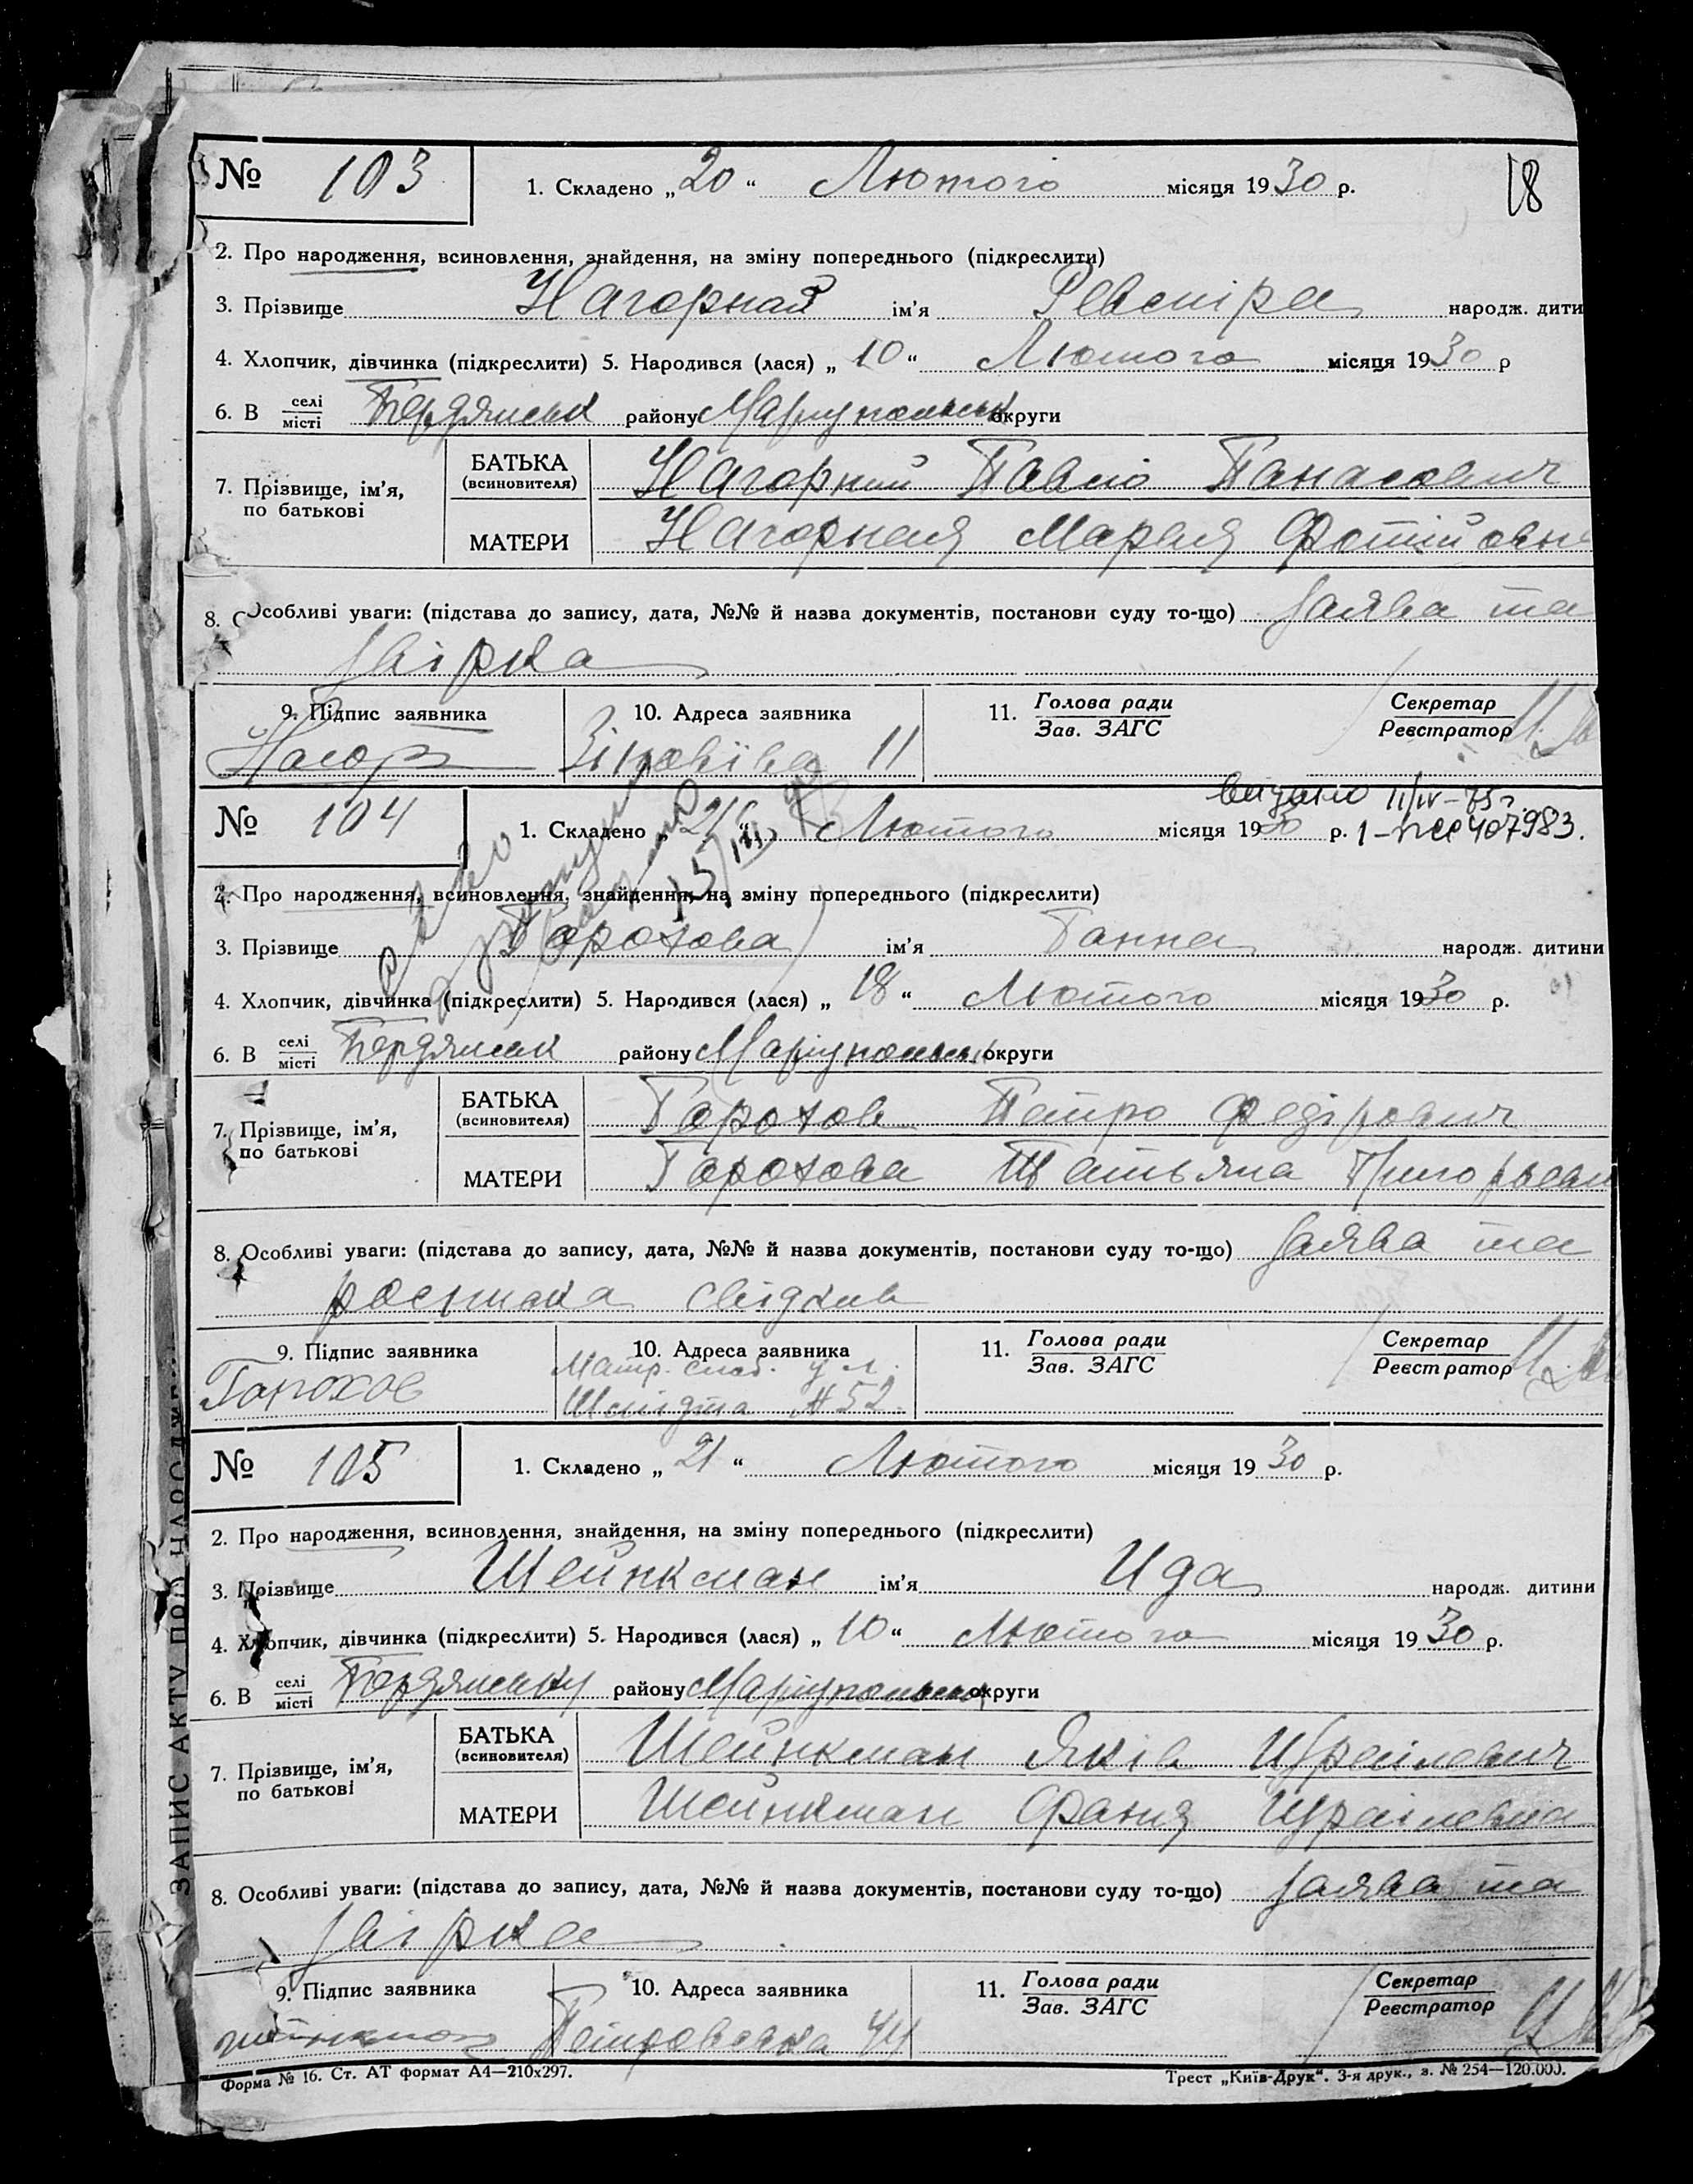 № 103 1. Складено „20“ Лютого місяця 1930 р. 18
2. Про народження, всиновлення, знайдення, на зміну попереднього (підкреслити)
3. Прізвище Нагорная ім'я Ревміра народж. дити
4. Хлопчик, дівчинка (підкреслити) 5. Народився (лася) „10“ Лютого місяця 1930 р
6. В селі місті Бердянськ району Маріупольськ округи
7. Прізвище, ім'я, по батькові
БАТЬКА (всиновителя) Нагорний Павло Панасович
МАТЕРИ Нагорная Мария Фотійовн
8. Особливі уваги: (підстава до запису, дата, №№ й назва документів, постанови суду то-що) Заява та
звірка
9. Підпис заявника 10. Адреса заявника 11. Голова ради Зав. ЗАГС Секретар Реєстратор
Нагор 11
видано 11/IV-75г.
№ 104 1. Складено „21“ Лютого місяця 1930 р. 407983.
2. Про народження, всиновлення, знайдення, на зміну попереднього (підкреслити)
3. Прізвище Горохова ім'я Ганна народж. дитини
4. Хлопчик, дівчинка (підкреслити) 5. Народився (лася) „18“ Лютого місяця 1930 р.
6. В селі місті Бердянськ району Маріупольськ округи
7. Прізвище, ім'я, по батькові
БАТЬКА (всиновителя) Горохов Петро Федірович
МАТЕРИ Горохова Татьяна Григорьевн
8. Особливі уваги: (підстава до запису, дата, №№ й назва документів, постанови суду то-що) Заява та
росписка свідків
9. Підпис заявника 10. Адреса заявника 11. Голова ради Зав. ЗАГС Секретар Реєстратор
Горохов Матр. слоб. ул. Шмідта № 52
№ 105 1. Складено „21“ Лютого місяця 1930 р.
2. Про народження, всиновлення, знайдення, на зміну попереднього (підкреслити)
3. Прізвище Шейнкман ім'я Ида народж. дитини
4. Хлопчик, дівчинка (підкреслити) 5. Народився (лася) „10“ Лютого місяця 1930 р.
6. В селі місті Бердянську району Маріупольськ округи
7. Прізвище, ім'я, по батькові
БАТЬКА (всиновителя) Шейнкман Яків Ізраїлевич
МАТЕРИ Шейнкман Фаня Ізраїлевна
8. Особливі уваги: (підстава до запису, дата, №№ й назва документів, постанови суду то-що) Заява та
звірка
9. Підпис заявника 10. Адреса заявника 11. Голова ради Зав. ЗАГС Секретар Реєстратор
44
Форма № 16. Ст. АТ формат А4—210х297. Трест „Київ-Друк“. 3-я друк., з. № 254—120.000.
ЗАПИС АКТУ ПРО НАРОДЖЕ